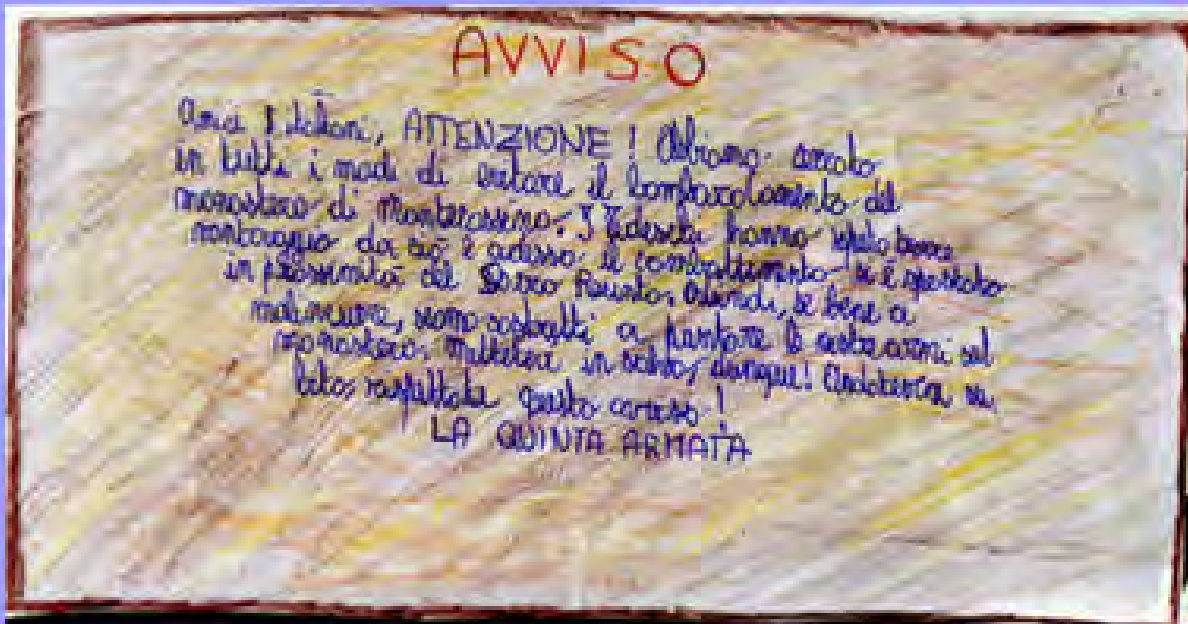 AVVISO
Amici italiani, ATTENZIONE! Abbiamo cercato
in tutti i modi di evitare il bombardamento del
monastero di Montecassino. I Tedeschi hanno saputo trarre
vantaggio da ciò e adesso il combattimento si è spostato
in prossimità del Sacro Recinto. Quindi, se bene a
malincuore, siamo costretti a puntare le nostre armi sul
monastero. Mettetevi in salvo, dunque! Andatevene su
rispettate questo avviso!
LA QUINTA ARMATA